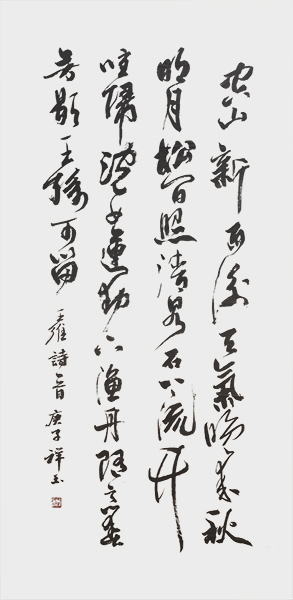 空山新雨後天氣晚來秋
明月松間照清泉石上流竹
喧歸浣女蓮動下漁舟隨意春
芳歇王孫自可留
王維詩一首庚子祥玉